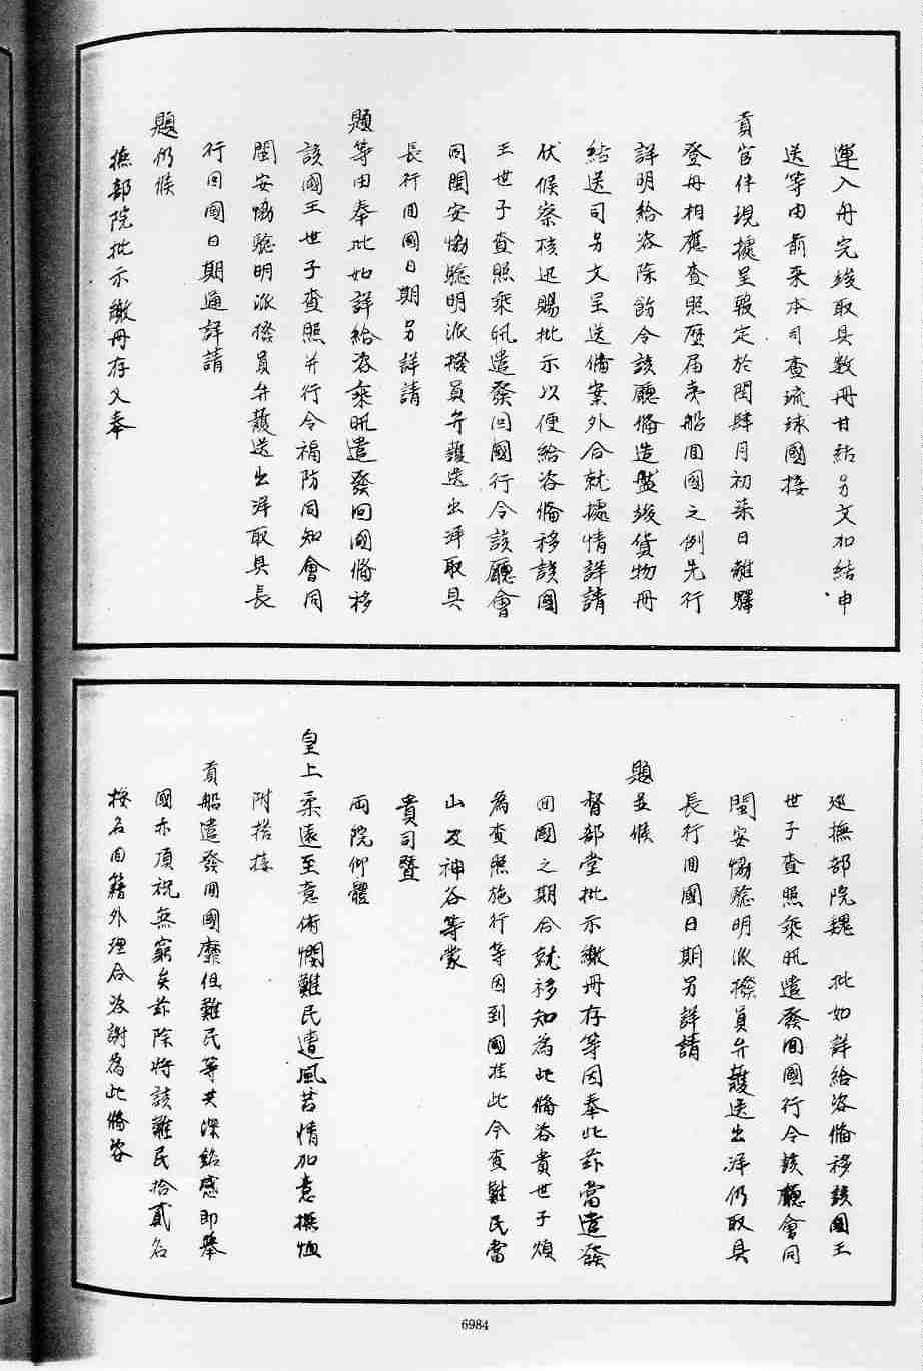 運入舟完竣取具数冊甘結另文加結申
送等由前来本司查琉球國接
貢官伴現據呈報定於閏肆月初柒日離驛
登舟相應查照歷届夷船回國之例先行
詳明給咨除飭令該廳備造盤竣貨物冊
結送司另文呈送備案外合就據情詳請
伏候察核迅賜批示以便給咨備移該國
王世子查照乘汛遣發回國行令該廳會
同閩安協驗明派撥員弁護送出洋取具
長行回國日期另詳請
題等由奉批如詳給咨乘汛遣發回國備移
該國王世子查照并行令福防同知會同
閩安協驗明派撥員弁護送出洋取具長
行回國日期通詳請
題仍候
撫部院批示繳冊存又奉
巡撫部院魏 批如詳給咨備移該國王
世子查照乘汛遣發回國行令該廳會同
閩安協驗明派撥員弁護送出洋仍取具
長行回國日期另詳請
題並候
督部堂批示繳冊存等因奉此茲當遣發
回國之期合就移知為此備咨貴世子煩
為查照施行等因到國准此今查難民當
山及神谷等蒙
貴司暨
両院仰體
皇上柔遠至意俯憫難民遭風苦情加意撫恤
附搭接
貢船遣發回國靡但難民等共深銘感即舉
國亦頂祝無窮矣茲除将該難民拾貳名
按名回籍外理合咨謝為此備咨
6984